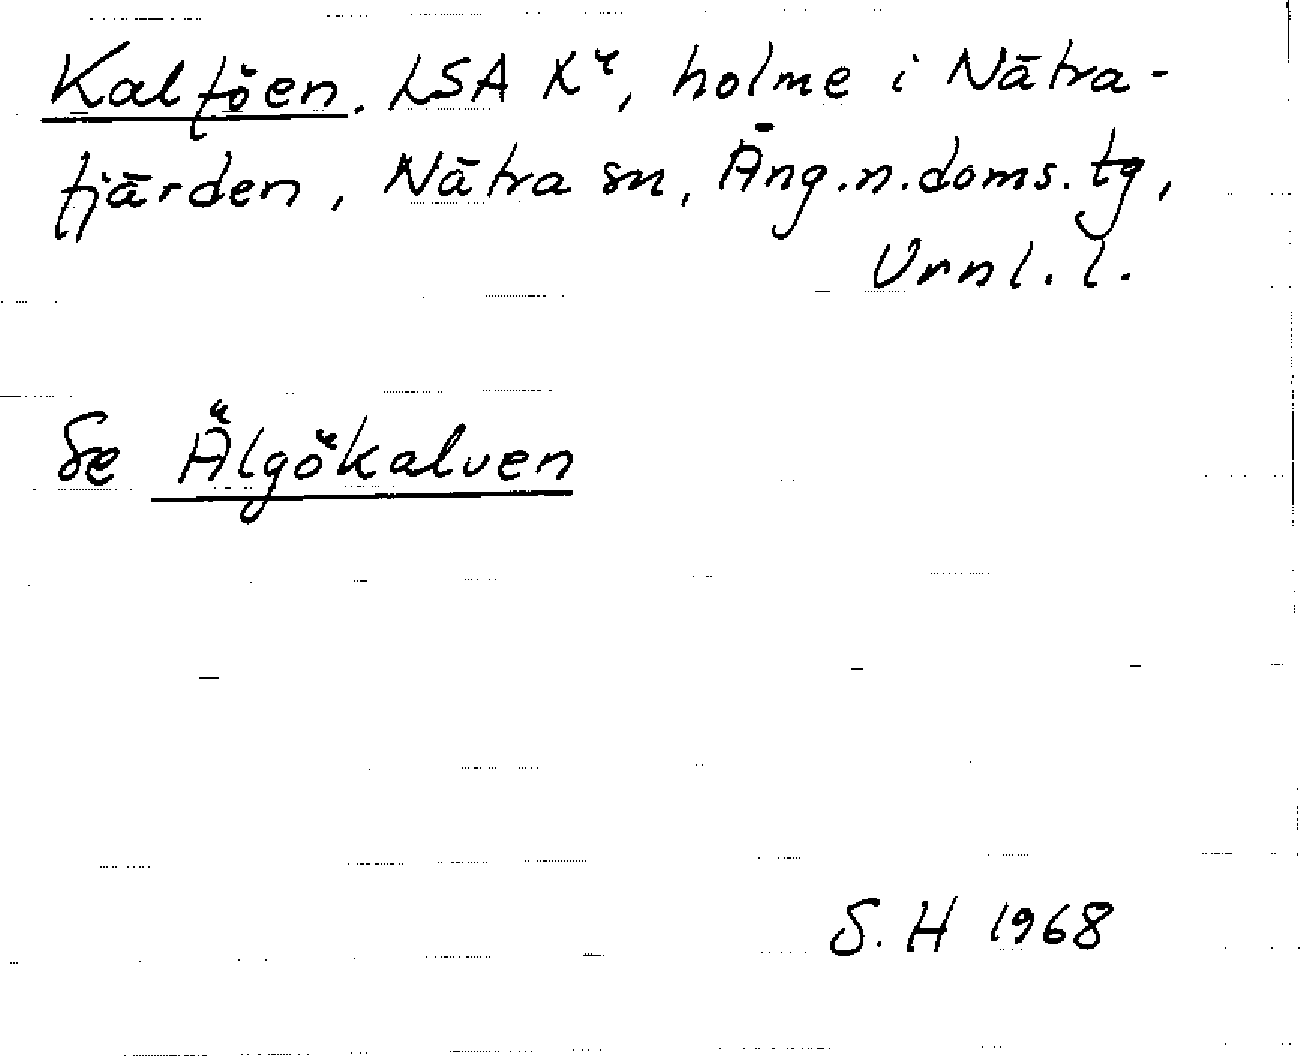 Kalföen. LSA X4, holme i Nätra-
fjärden, Nätra sn, Äng.n.doms.tg,
Vrnl.l.
Se Älgökalven
S. H 1968